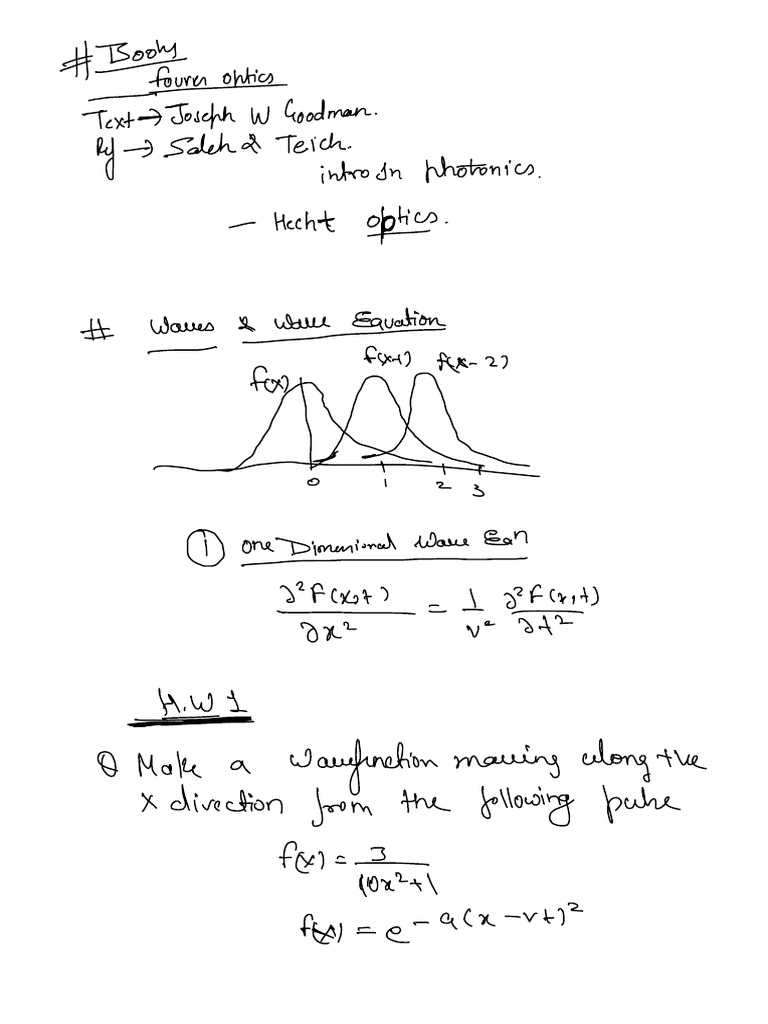 # Books
fourer optics
Text → Joseph W Goodman.
Ref → Saleh & Teich.
intro In photonics.
— Hecht optics.
# Waves & Wave Equation
f(x) f(x-1) f(x-2)
0 1 2 3
① One Dimensional Wave Eqn
∂²f(x,t)/∂x² = 1/v² ∂²f(x,t)/∂t²
H.W 1
Q Make a wavefunction moving along +ve
x direction from the following pulse
f(x) = 3/(10x²+1
f(x) = e^-a(x-vt)²